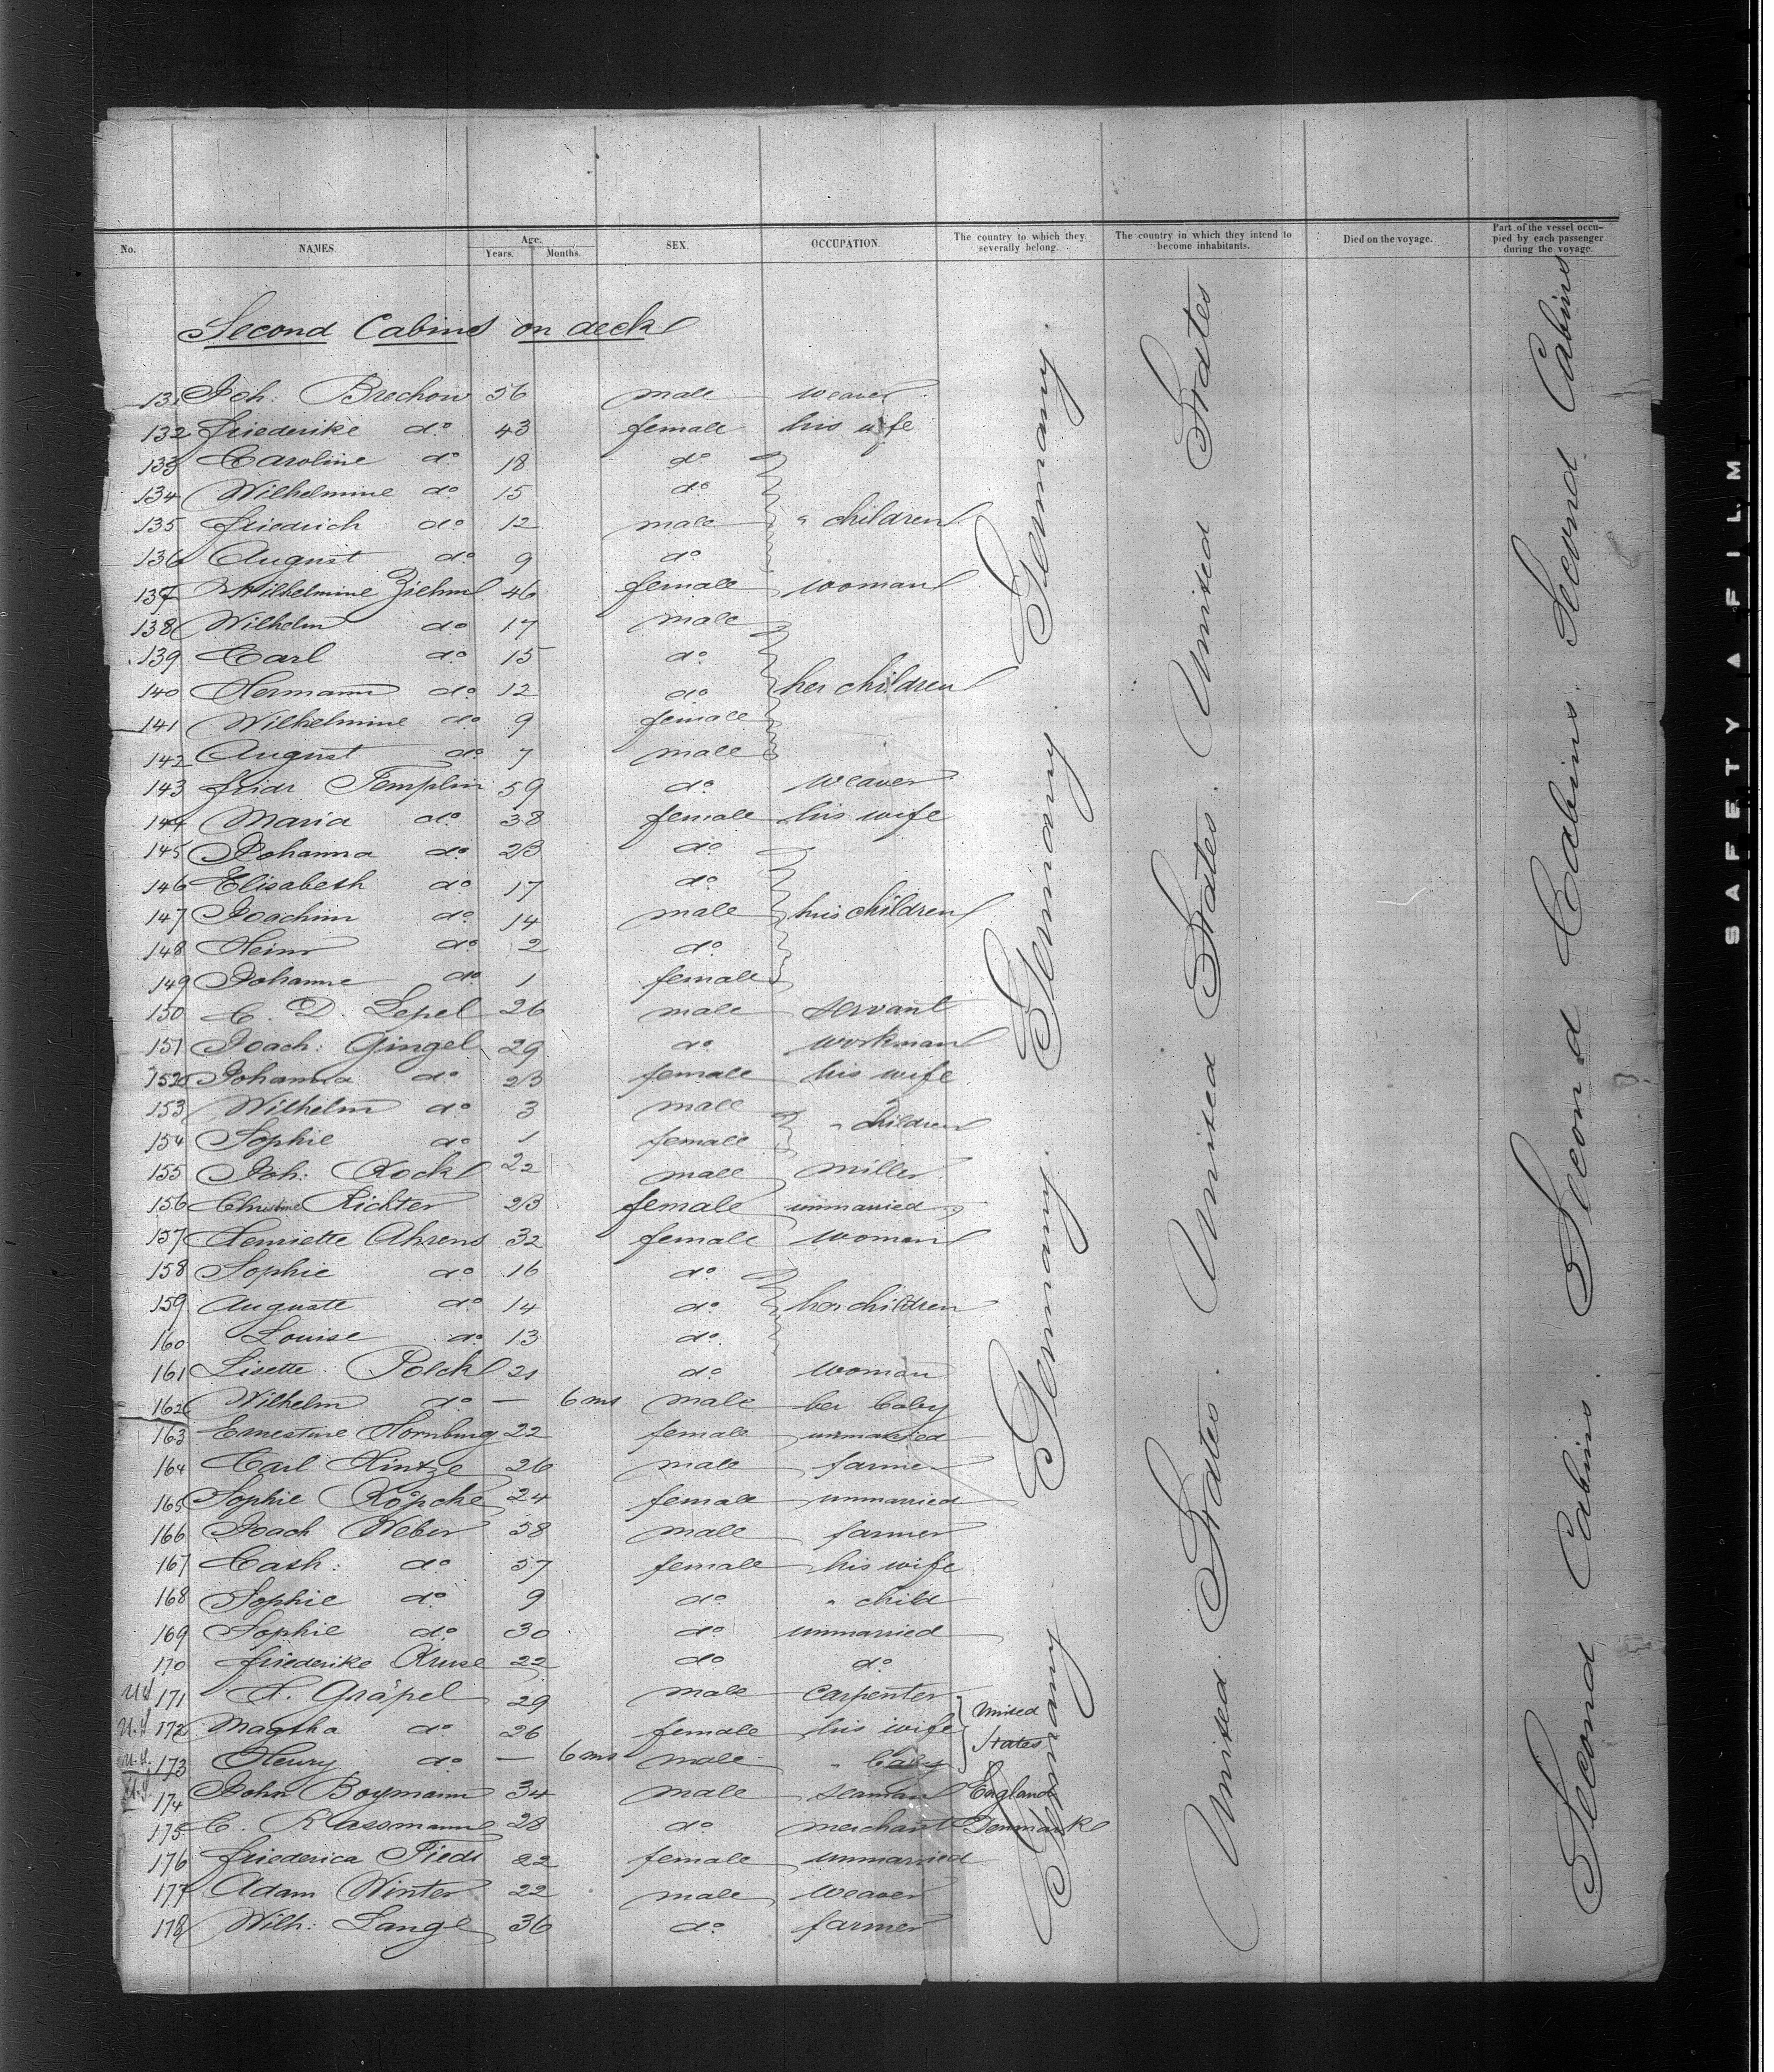 No. NAMES. Age. Years. Months. SEX. OCCUPATION. The country to which they severally belong. The country in which they intend to become inhabitants. Died on the voyage. Part of the vessel occupied by each passenger during the voyage.
Second Cabins on deck
131 Joh: Brechow 56 male weaver
132 Friederike do 43 female his wife
133 Caroline do 18 do
134 Wilhelmine do 15 do
135 Friedrich do 12 male " children
136 August do 9 do
137 Wilhelmine Ziehm 46 female woman
138 Wilhelm do 17 male
139 Carl do 15 do
140 Hermann do 12 do her children
141 Wilhelmine do 9 female
142 August do 7 male
143 Fridr Templin 59 do weaver
144 Maria do 38 female his wife
145 Johanna do 23 do
146 Elisabeth do 17 do
147 Joachim do 14 male his children
148 Heinr do 2 do
149 Johanne do 1 female
150 C. D. Lepel 26 male servant
151 Joach: Gingel 29 do workman
152 Johanna do 23 female his wife
153 Wilhelm do 3 male " children
154 Sophie do 1 female
155 Joh: Kock 22 male miller
156 Christine Richter 23 female unmarried
157 Henriette Ahrens 32 female woman
158 Sophie do 16 do
159 Auguste do 14 do her children
160 Louise do 13 do
161 Lisette Polck 21 do woman
162 Wilhelm do — 6 ms male her baby
163 Ernestine Hornburg 22 female unmarried
164 Carl Hintze 26 male farmer
165 Sophie Köpcke 24 female unmarried
166 Joach Weber 58 male farmer
167 Cath: do 57 female his wife
168 Sophie do 9 do " child
169 Sophie do 30 do unmarried
170 Friederike Kruse 22 do do
U.S. 171 H. Gräpel 29 male carpenter United
U.S. 172 Magtha do 26 female his wife States
U.S. 173 Henry do — 6 ms male " baby
174 John Boymann 34 male seaman England
175 C. Klassmann 28 do merchant Denmark
176 Friederica Fieds 22 female unmarried
177 Adam Winter 22 male weaver
178 Wilh: Lange 36 do farmer
Germany Germany. Germany. Germany.
United States United States. United States. United States
Second Cabins. Second Cabins. Second Cabins
SAFETY FILM